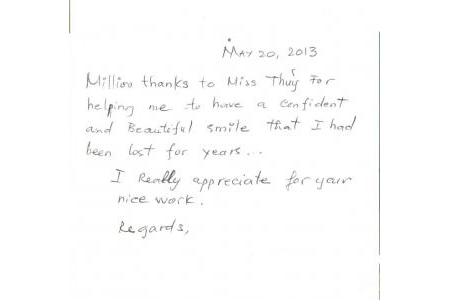 May 20, 2013
Million thanks to Miss Thuý For
helping me to have a confident
and Beautiful smile that I had
been lost for years...
I Really appreciate for your
nice work.
Regards,